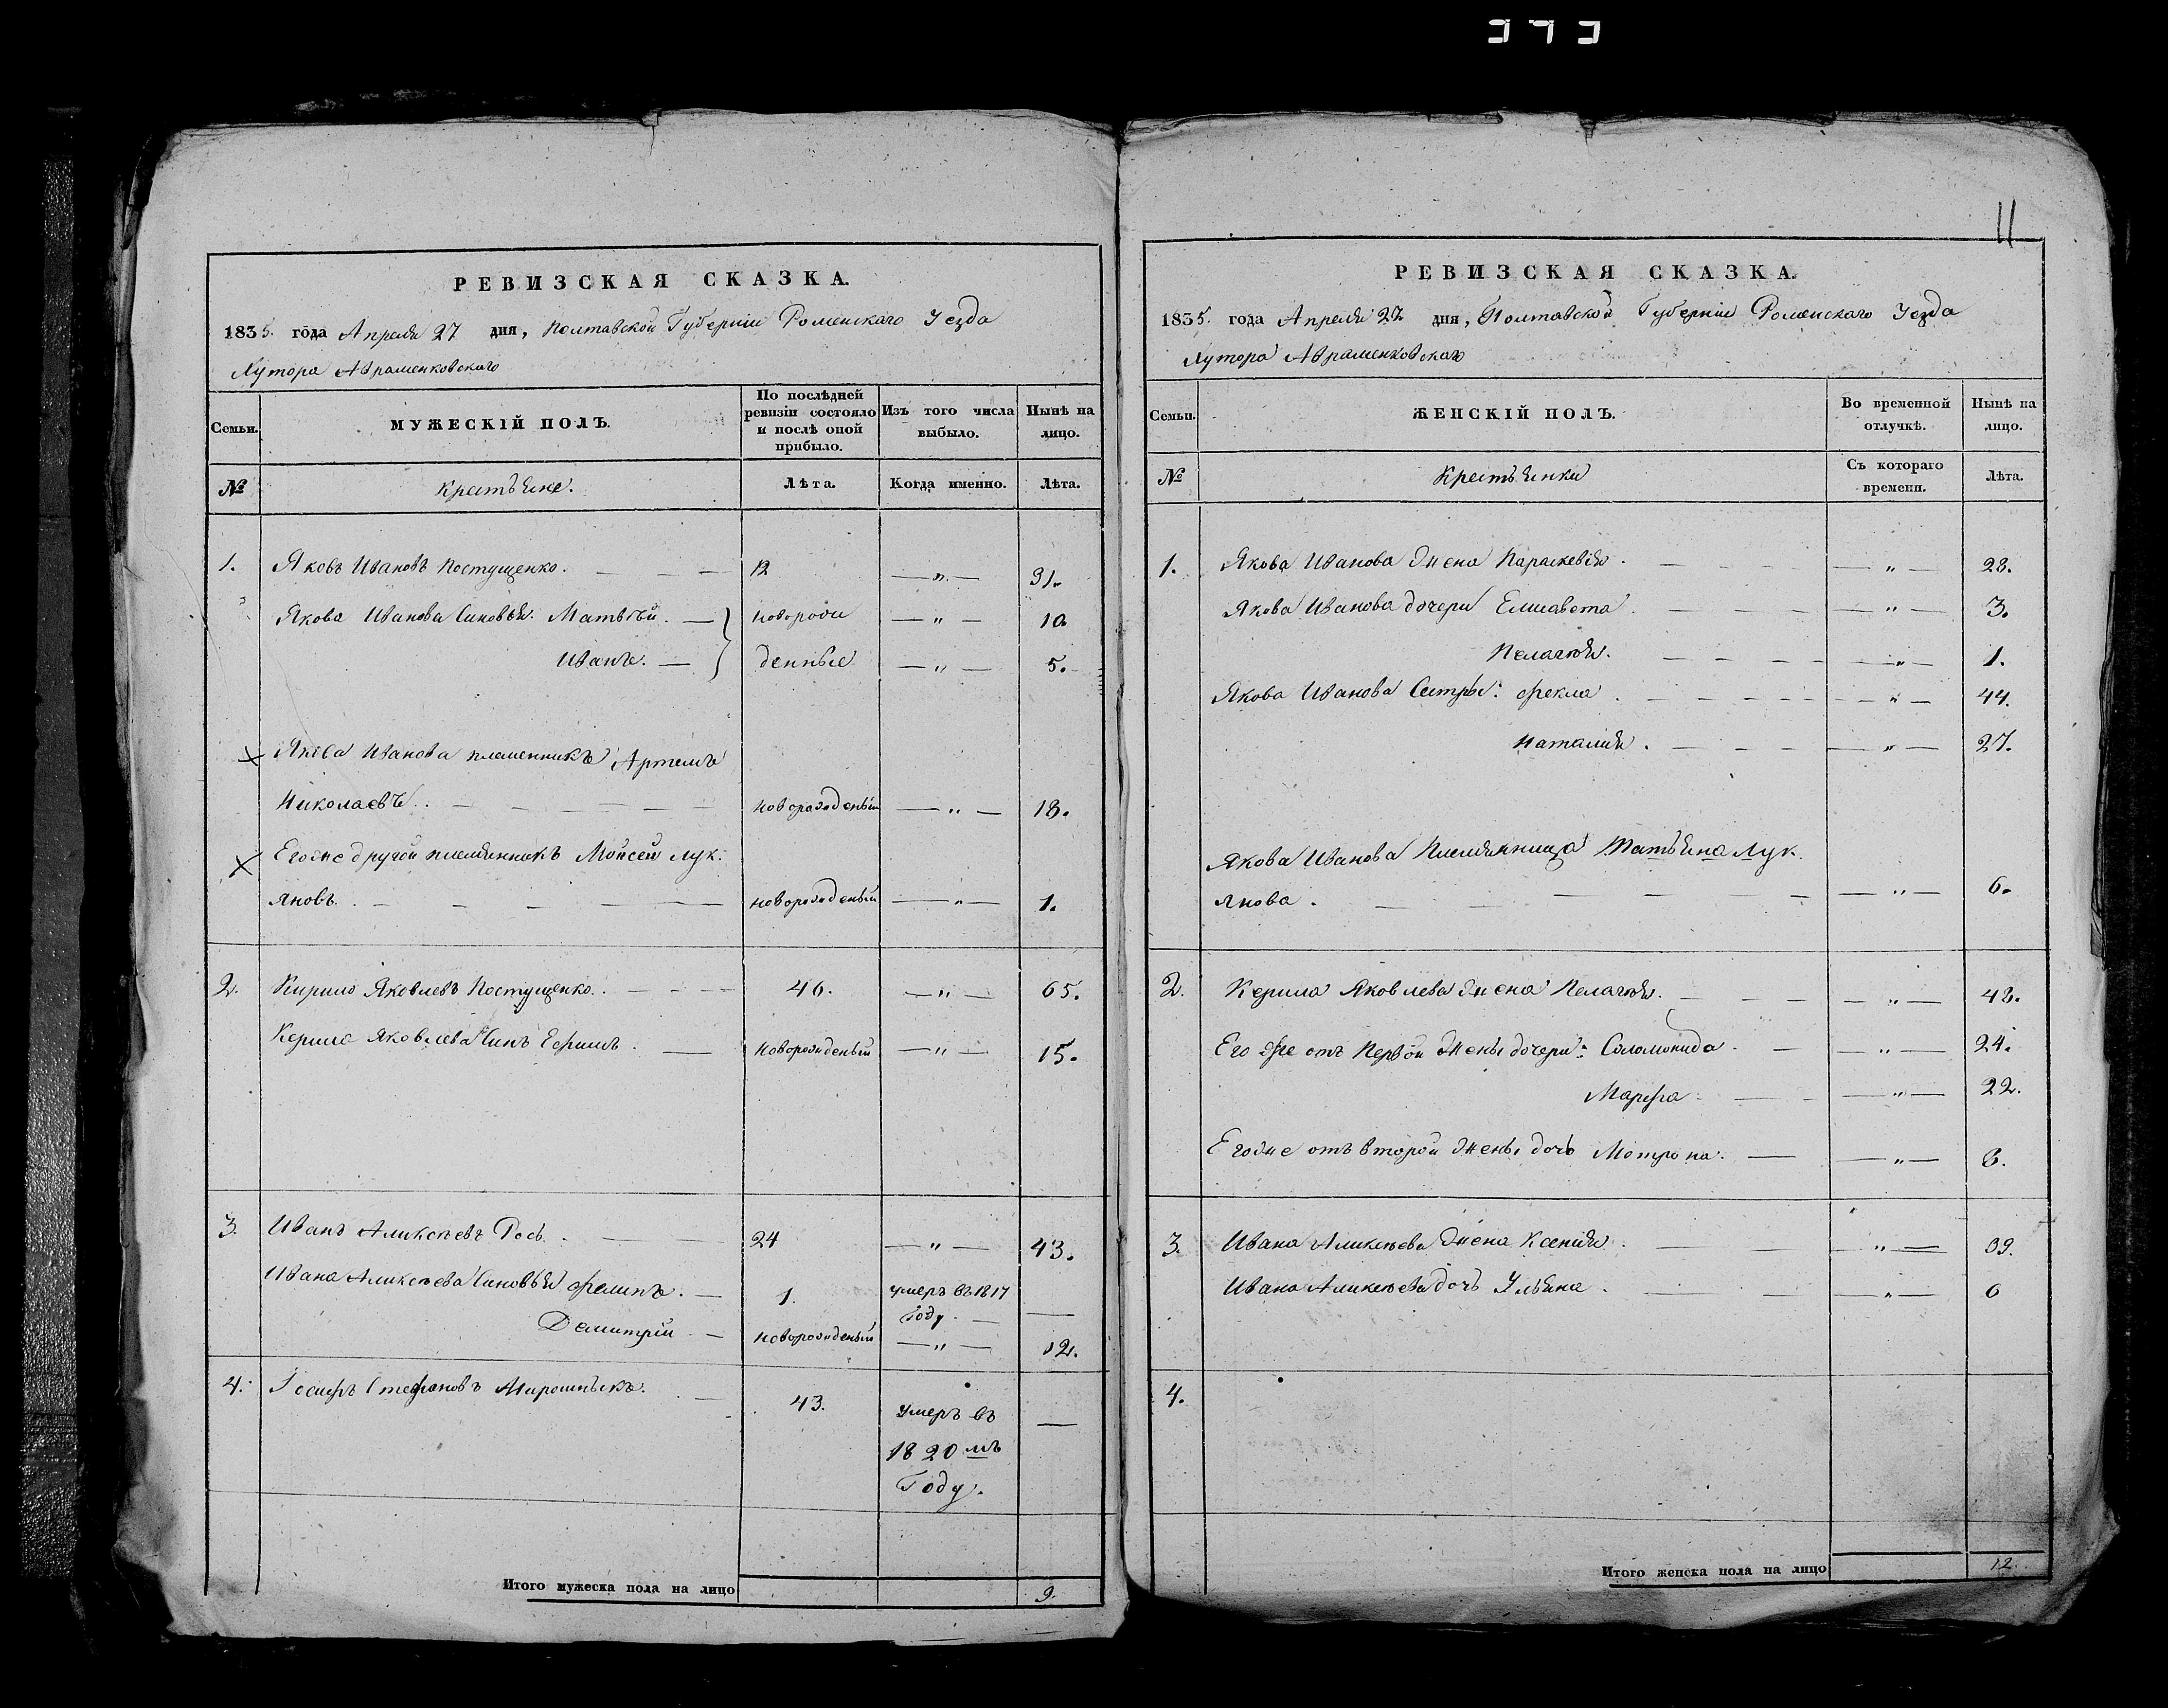 11
РЕВИЗСКАЯ СКАЗКА.
1835. года Апреля 27 дня, Полтавской Губернии Роменского Уезда
Хутора Авраменковского
Семьи.
МУЖЕСКІЙ ПОЛЪ.
По послѣдней ревизіи состояло и послѣ оной прибыло.
Изъ того числа выбыло.
Нынѣ на лицо.
№
Крестьяне.
Лѣта.
Когда именно.
Лѣта.
1. Яковъ Ивановъ Постущенко. — 12 — „ — 31.
Якова Иванова Синовья. Матвѣй. — новорож — „ — 10
Иванъ. — денные — „ — 5.
Якова Иванова племенникъ Артемъ
Николаевъ. — новорожденый — „ — 18.
Егоже другой племянникъ Мойсей Лук:
яновъ. — новорожденый — „ — 1.
2. Кирило Яковлевъ Постущенко. — 46. — „ — 65.
Керила Яковлева Синъ Ефимъ. — новорожденый — „ — 15.
3. Иванъ Аликсѣевъ Рось. — 24 — „ — 43.
Ивана Аликсѣева Синовья Филипъ. — 1. умеръ въ 1817 Году. —
Демитрій — новорожденый — „ — 12.
4. Іосифъ Стефановъ Мирошныкъ. — 43. Умеръ въ 1820мъ Году. —
Итого мужеска пола на лицо 9.
РЕВИЗСКАЯ СКАЗКА.
1835. года Апреля 27 дня, Полтавской Губерніи Роменского Уезда
Хутора Авраменковскаго
Семьи.
ЖЕНСКІЙ ПОЛЪ.
Во временной отлучкѣ.
Нынѣ на лицо.
№
Крестьянки
Съ котораго времени.
Лѣта.
1. Якова Иванова Жена Параскевія. — „ — 28.
Якова Иванова дочери Елисавета. — „ — 3.
Пелагия. — „ — 1.
Якова Иванова Сестры: Фекла. — „ — 44.
Наталия. — „ — 27.
Якова Иванова Племянница Татьяна Лук.
янова. — „ — 6.
2. Керила Яковлева Жена Пелагия. — „ — 48.
Его же отъ Первой Жены дочери: Соломонида. — „ — 24.
Марфа — „ — 22.
Егоже отъ второй Жены дочь Мотрона. — „ — 8.
3. Ивана Аликсѣева Жена Ксения. — „ — 39.
Ивана Аликсѣева дочь Ульяна. — „ — 6
4.
Итого женска пола на лицо 12.